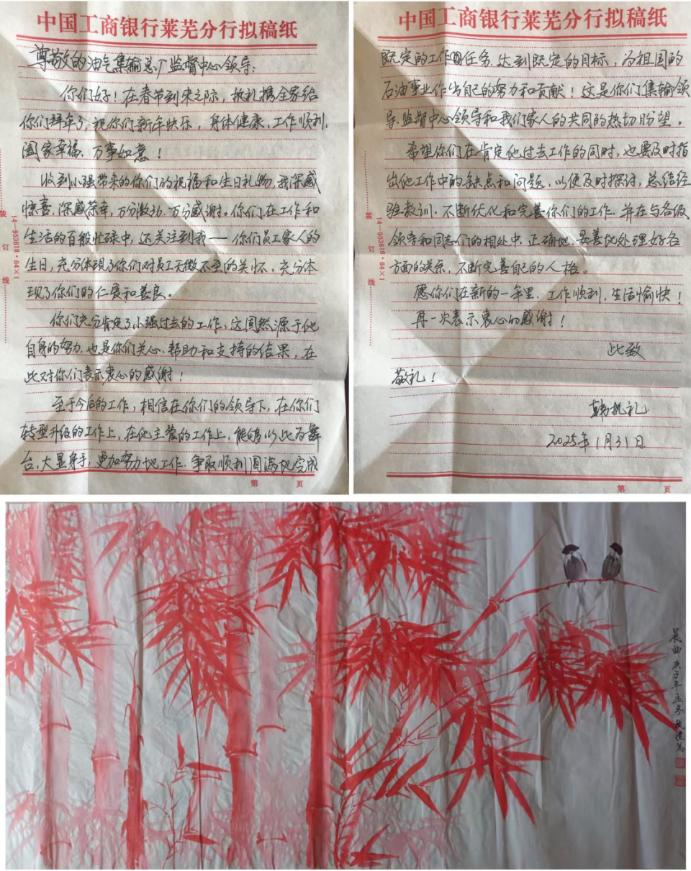 中国工商银行莱芜分行拟稿纸
尊敬的油气集输总厂监督中心领导：
你们好！在春节到来之际，执礼携全家给
你们拜年了，祝你们新年快乐，身体健康，工作顺利，
阖家幸福，万事如意！
收到小强带来的你们的祝福和生日礼物，我深感
惊喜，深感荣幸，万分激动，万分感谢。你们在工作和
生活的百般忙碌中，还关注到我——你们员工家人的
生日，充分体现了你们对员工无微不至的关怀，充分体
现了你们的仁爱和善良。
你们充分肯定了小强过去的工作，这固然源于他
自身的努力，也是你们关心、帮助和支持的结果，在
此对你们表示衷心的感谢！
至于今后的工作，相信在你们的领导下，在你们
转型升级的工作上，在他主营的工作上，能够以此为舞
台，大显身手，更加努力地工作，争取顺利圆满地完成
第 页
装
订
线
中国工商银行莱芜分行拟稿纸
既定的工作任务，达到既定的目标，为祖国的
石油事业作出自己的努力和贡献！这是你们集输领
导、监督中心领导和我们家人的共同的热切盼望。
希望你们在肯定他过去工作的同时，也要及时指
出他工作中的缺点和问题，以便及时探讨，总结经
验教训，不断优化和完善你们的工作，并在与各级
领导和同志们的相处中，正确地、妥善地处理好各
方面的关系，不断完善自己的人格。
愿你们在新的一年里，工作顺利，生活愉快！
再一次表示衷心的感谢！
此致
敬礼！
执礼
2025年1月31日
第 页
装
订
线
晨曲 庚子年